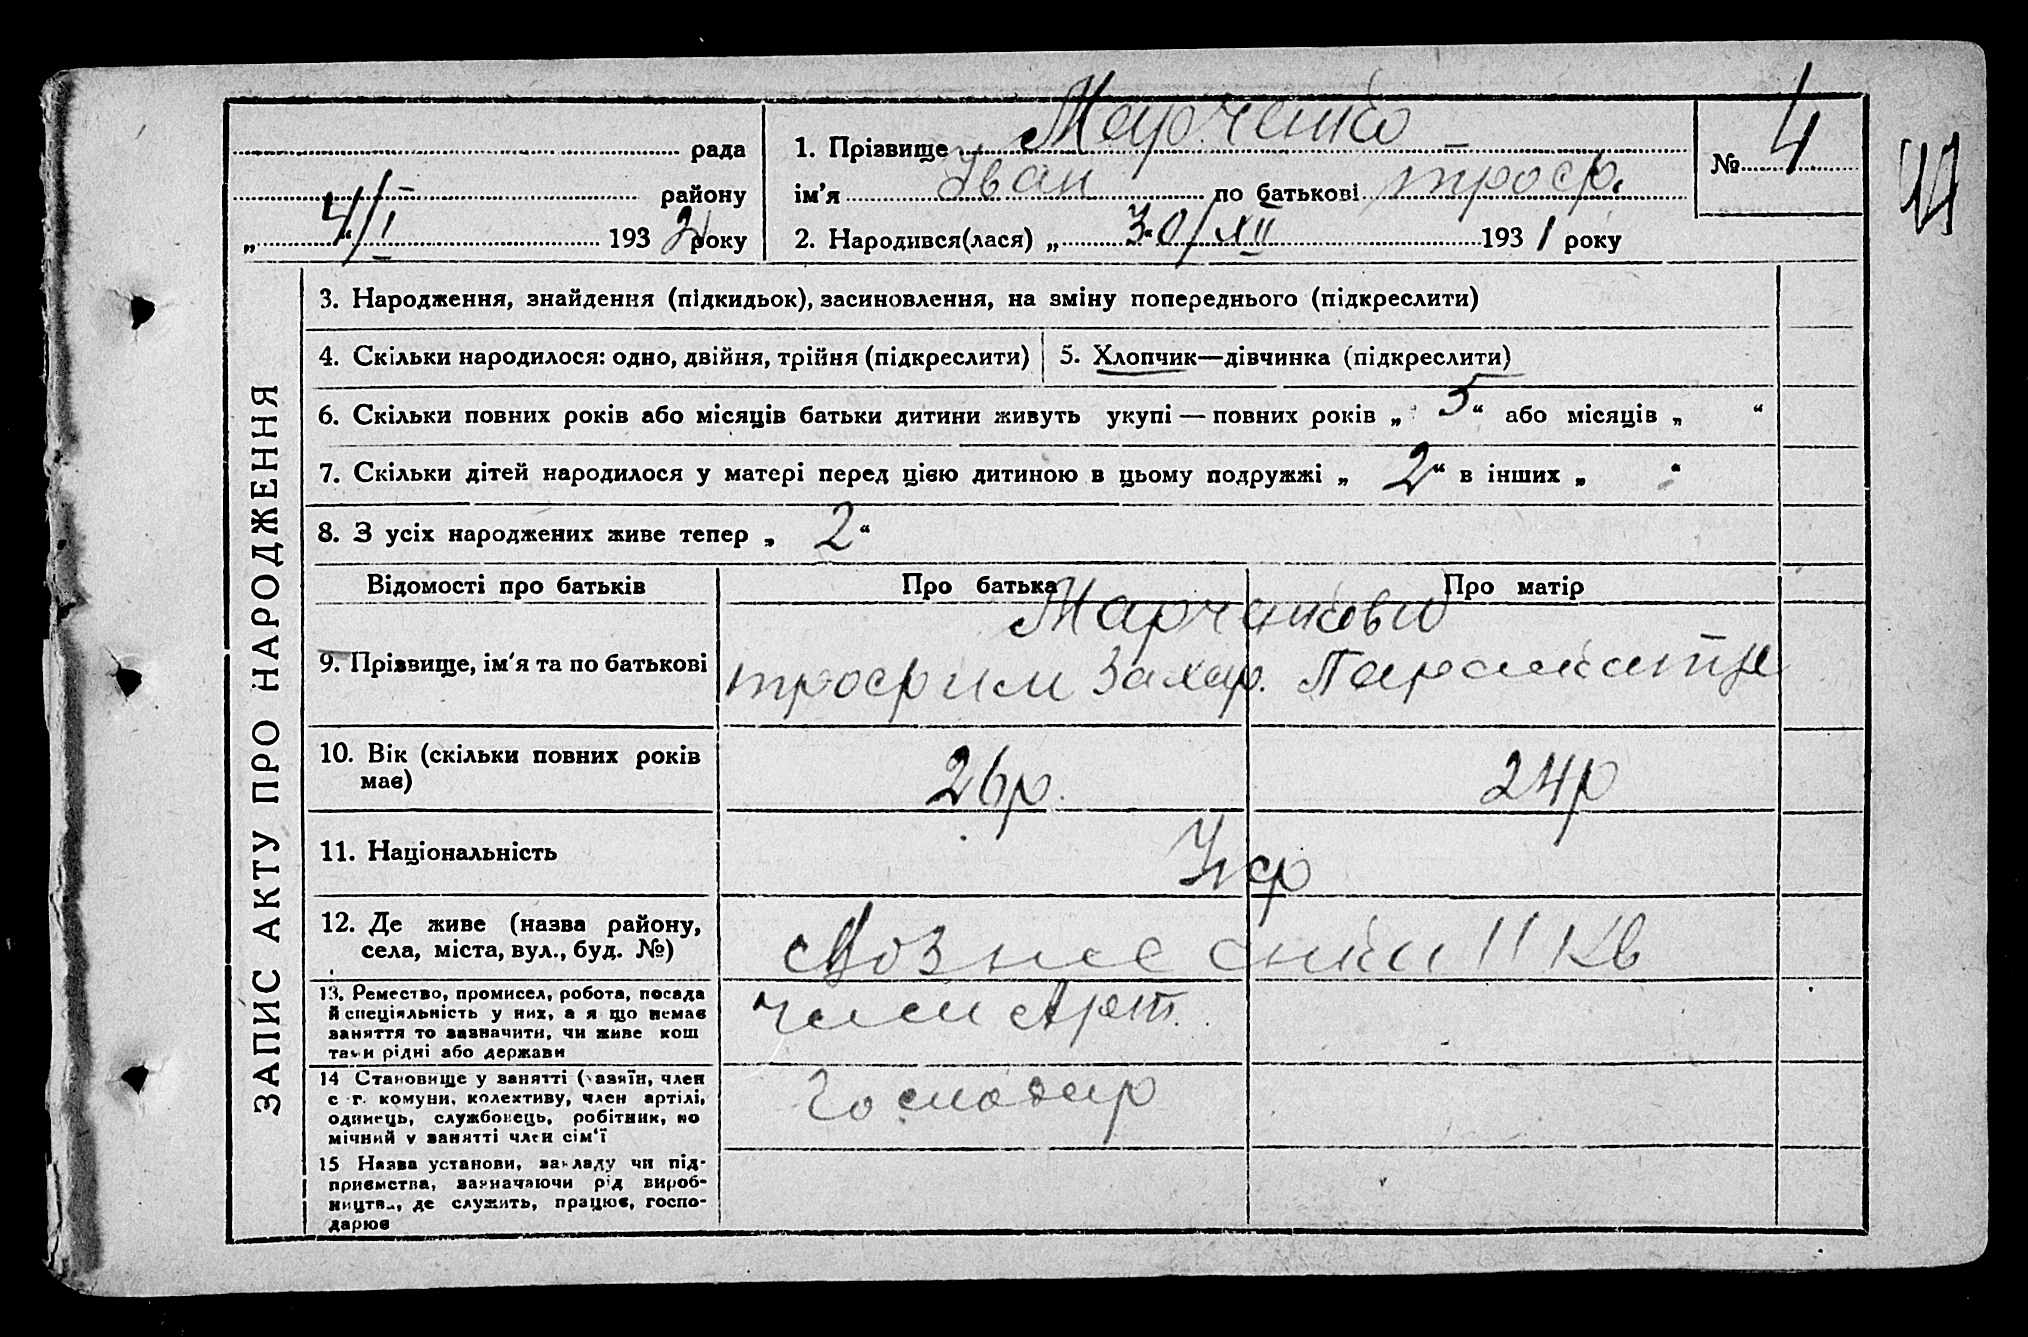 рада
району
„ 4/I 1932 року
1. Прізвище Марченко
ім'я Іван по батькові троф.
2. Народився(лася) „ 30/XII 1931 року
№ 4
ЗАПИС АКТУ ПРО НАРОДЖЕННЯ
3. Народження, знайдення (підкидьок), засиновлення, на зміну попереднього (підкреслити)
4. Скільки народилося: одно, двійня, трійня (підкреслити)
5. Хлопчик—дівчинка (підкреслити)
6. Скільки повних років або місяців батьки дитини живуть укупі — повних років „ 5 “ або місяців „ “
7. Скільки дітей народилося у матері перед цією дитиною в цьому подружжі „ 2 “ в інших „ “
8. З усіх народжених живе тепер „ 2 “
Відомості про батьків
Про батька
Про матір
9. Прізвище, ім'я та по батькові
Марченкови
трофим Захар.
10. Вік (скільки повних років
має)
26р.
24р
11. Національність
Укр
12. Де живе (назва району,
села, міста, вул., буд. №)
Вознесенки 11 Кв
13. Ремество, промисел, робота, посада
й спеціяльність у них, а я що немає
заняття то зазначити, чи живе кош
тами рідні або держави
член Арт.
14 Становище у занятті (хазяїн, член
с г. комуни, колективу, член артілі,
одинець, службовець, робітник, по
мічний у занятті член сім'ї
Господар
15 Назва установи, закладу чи під-
приємства, зазначаючи рід вироб-
ництва, де служить, працює, госпо-
дарює